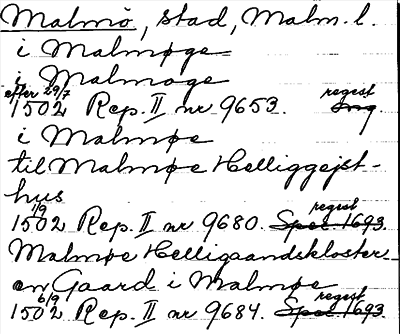 Malmö, stad, Malm. l.
i Malmøge
i Malmoge
efter 29/7 regest
1502 Rep. II nr 9653. Ing.
i Malmøe
til Malmøe Helliggejst-
hus
1/9 regest
1502 Rep. II nr 9680. Spec. 1693.
Malmøe Helligaandskloster
en Gaard i Malmøe
6/9 regest
1502 Rep. II nr 9684. Spec. 1693.